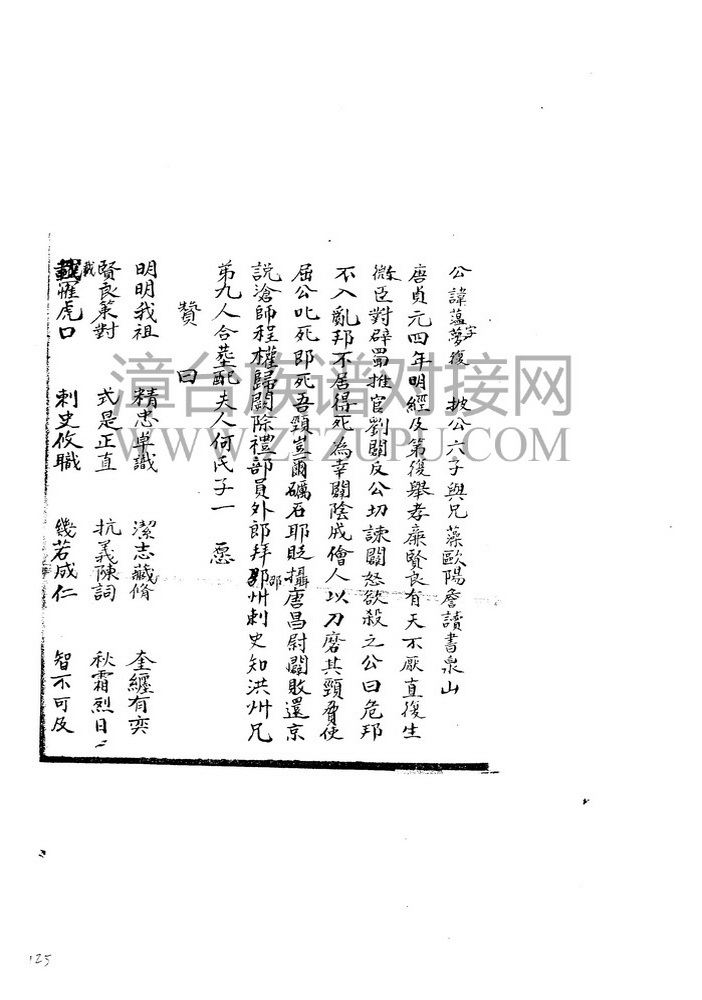 公諱蘊字夢復 披公六子與兄藻歐陽詹讀書泉山
唐貞元四年明經及第復舉孝廉賢良有天不厭直復生
微臣對辟蜀推官劉闢反公切諫闢怒欲殺之公曰危邦
不入亂邦不居得死為幸闢陰戒儈人以刀磨其頸脅使
屈公叱死即死吾頸豈爾礪石耶貶攝唐昌尉闢敗還京
說滄師程權歸闕除禮部員外郎拜邵州刺史知洪州兄
弟九人合塟配夫人何氏子一 愿
贊曰
明明我祖 精忠卓識 潔志藏脩 奎纏有奕
賢良策對 式是正直 抗義陳詞 秋霜烈日
載罹虎口 刺史攸職 幾若成仁 智不可及
漳台族谱对接网
WWW.ZTZUPU.COM
125